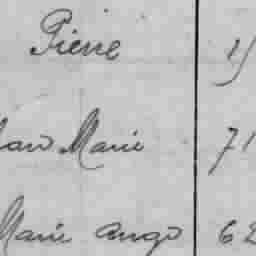 Pierre
Marie 71
Marie Ange 62